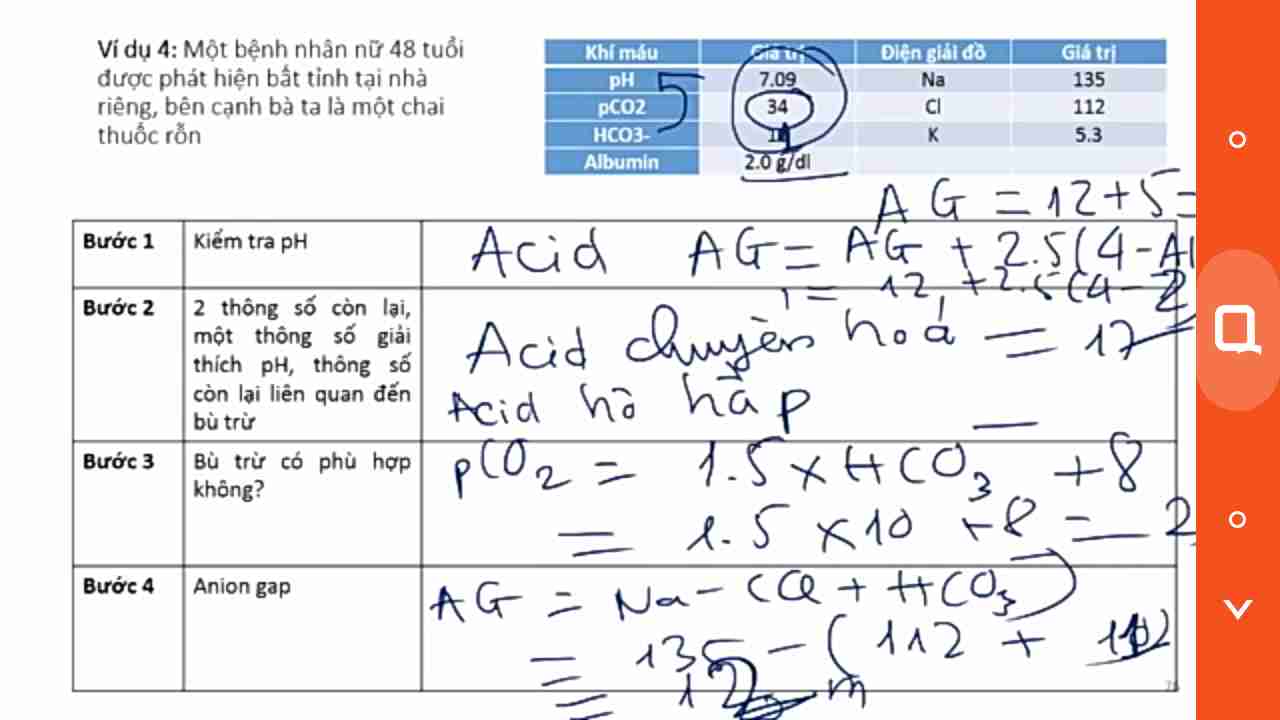 Ví dụ 4: Một bệnh nhân nữ 48 tuổi
được phát hiện bất tỉnh tại nhà
riêng, bên cạnh bà ta là một chai
thuốc rỗn
Khí máu Giá trị Điện giải đồ Giá trị
pH 7.09 Na 135
pCO2 34 Cl 112
HCO3- K 5.3
Albumin 2.0 g/dl
5
AG = 12 + 5 =
Bước 1 Kiểm tra pH Acid AG = AG + 2.5(4 - Al
= 12 + 2.5(4 - 2
Bước 2 2 thông số còn lại,
một thông số giải
thích pH, thông số
còn lại liên quan đến
bù trừ
Acid chuyển hoá = 17
Acid hô hấp
Bước 3 Bù trừ có phù hợp
không?
pCO2 = 1.5 x HCO3 + 8
= 1.5 x 10 + 8 = 2
Bước 4 Anion gap AG = Na - (Cl + HCO3)
= 135 - (112 +
=